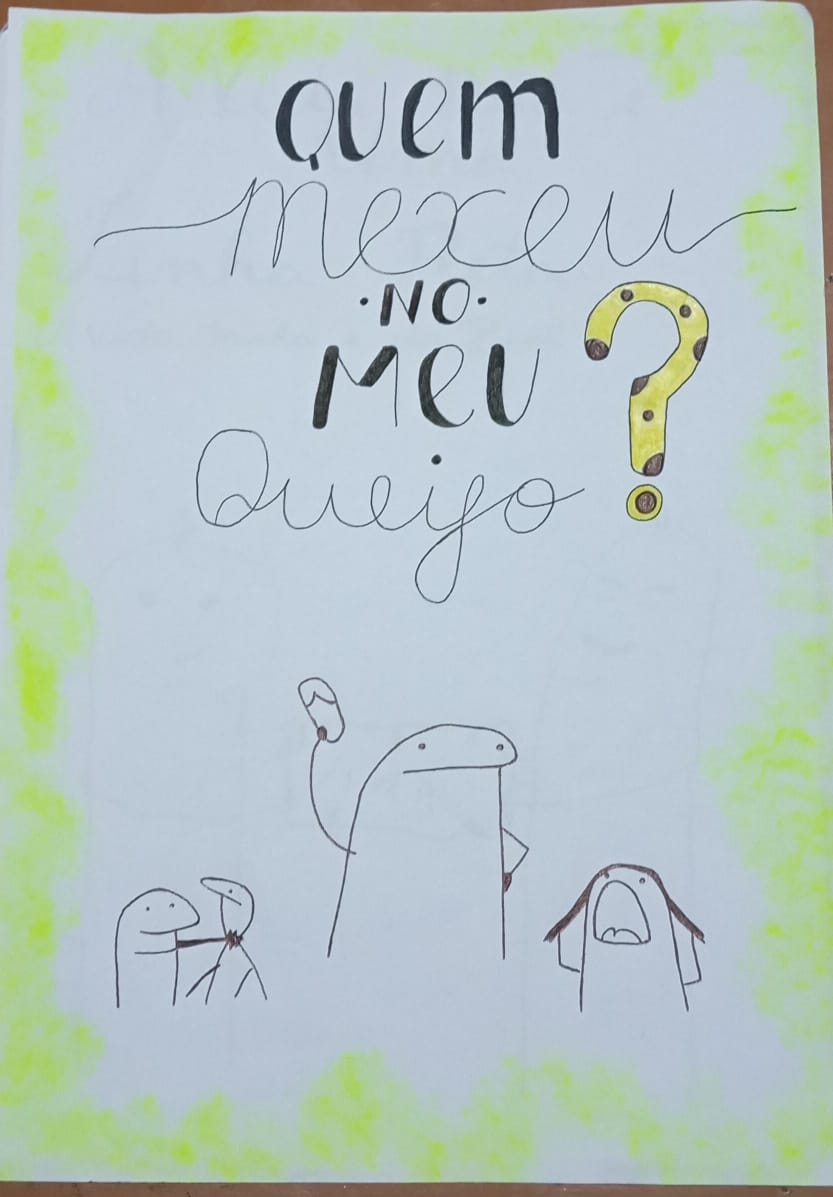 QUEM
mexeu
·NO·
MEU
Queijo ?